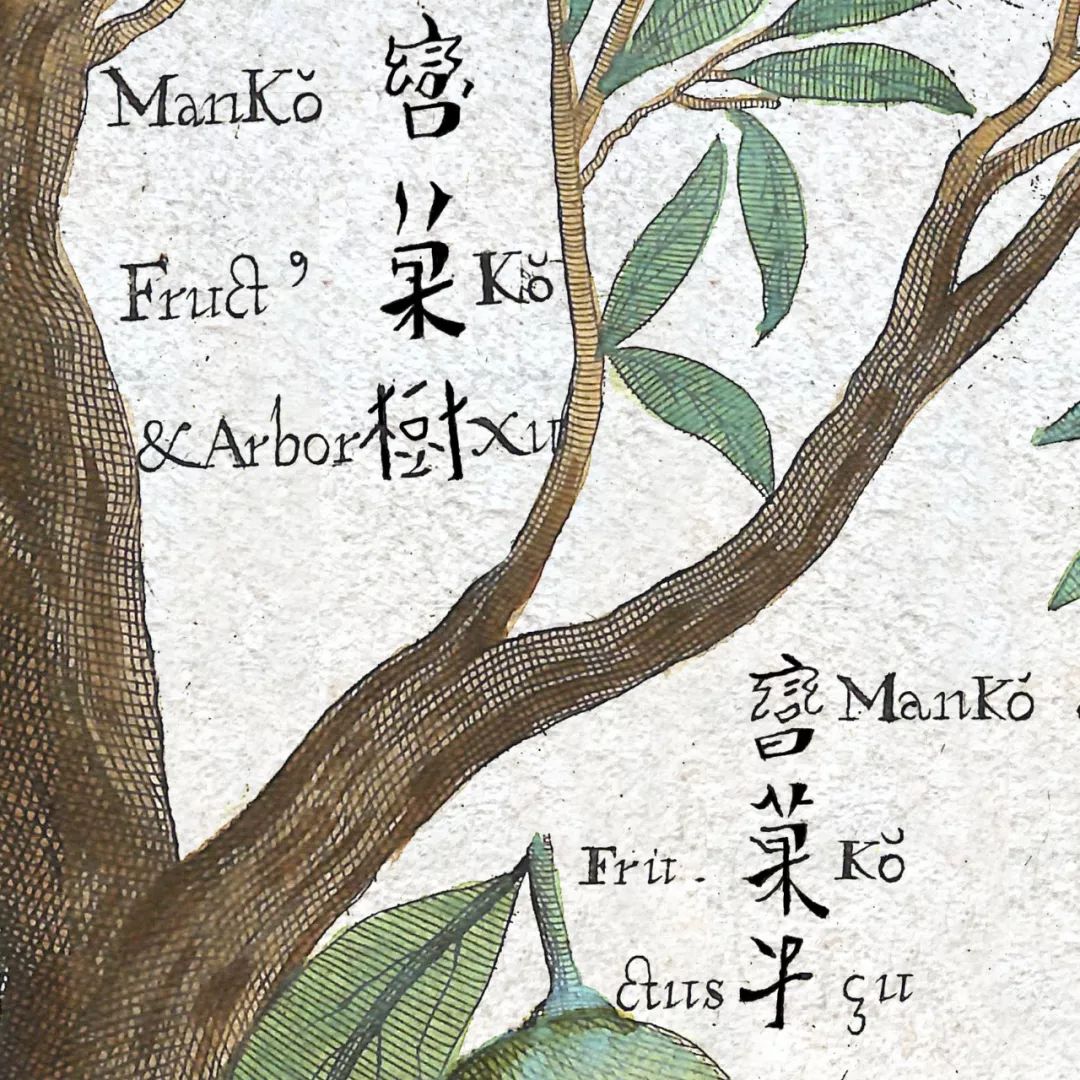 ManKŏ
Fruct’ 菓 Kŏ
&Arbor 樹 xu
ManKŏ
Fru- 菓 Kŏ
ctus 子 çu